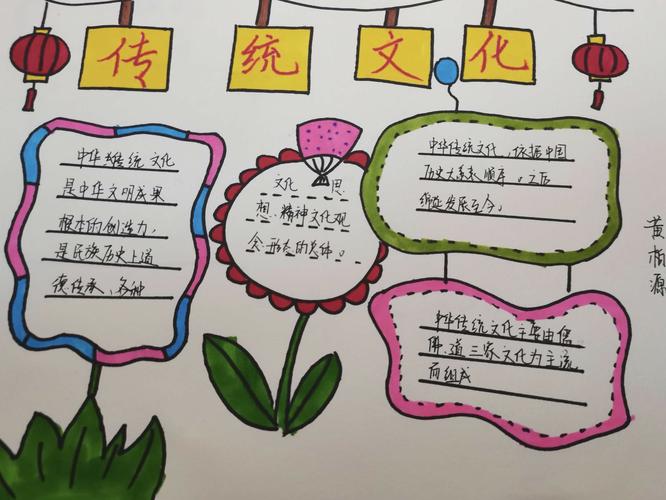 传统文化
中华传统文化
是中华文明成果
根本的创造力,
是民族历史上道
德传承、各种
文化 思
想、精神文化观
念形态的总体。
中华传统文化,依据中国
历史大系表顺序。之后
绵延发展至今。
中华传统文化主要由儒
佛、道三家文化为主流
而组成
黄栢源